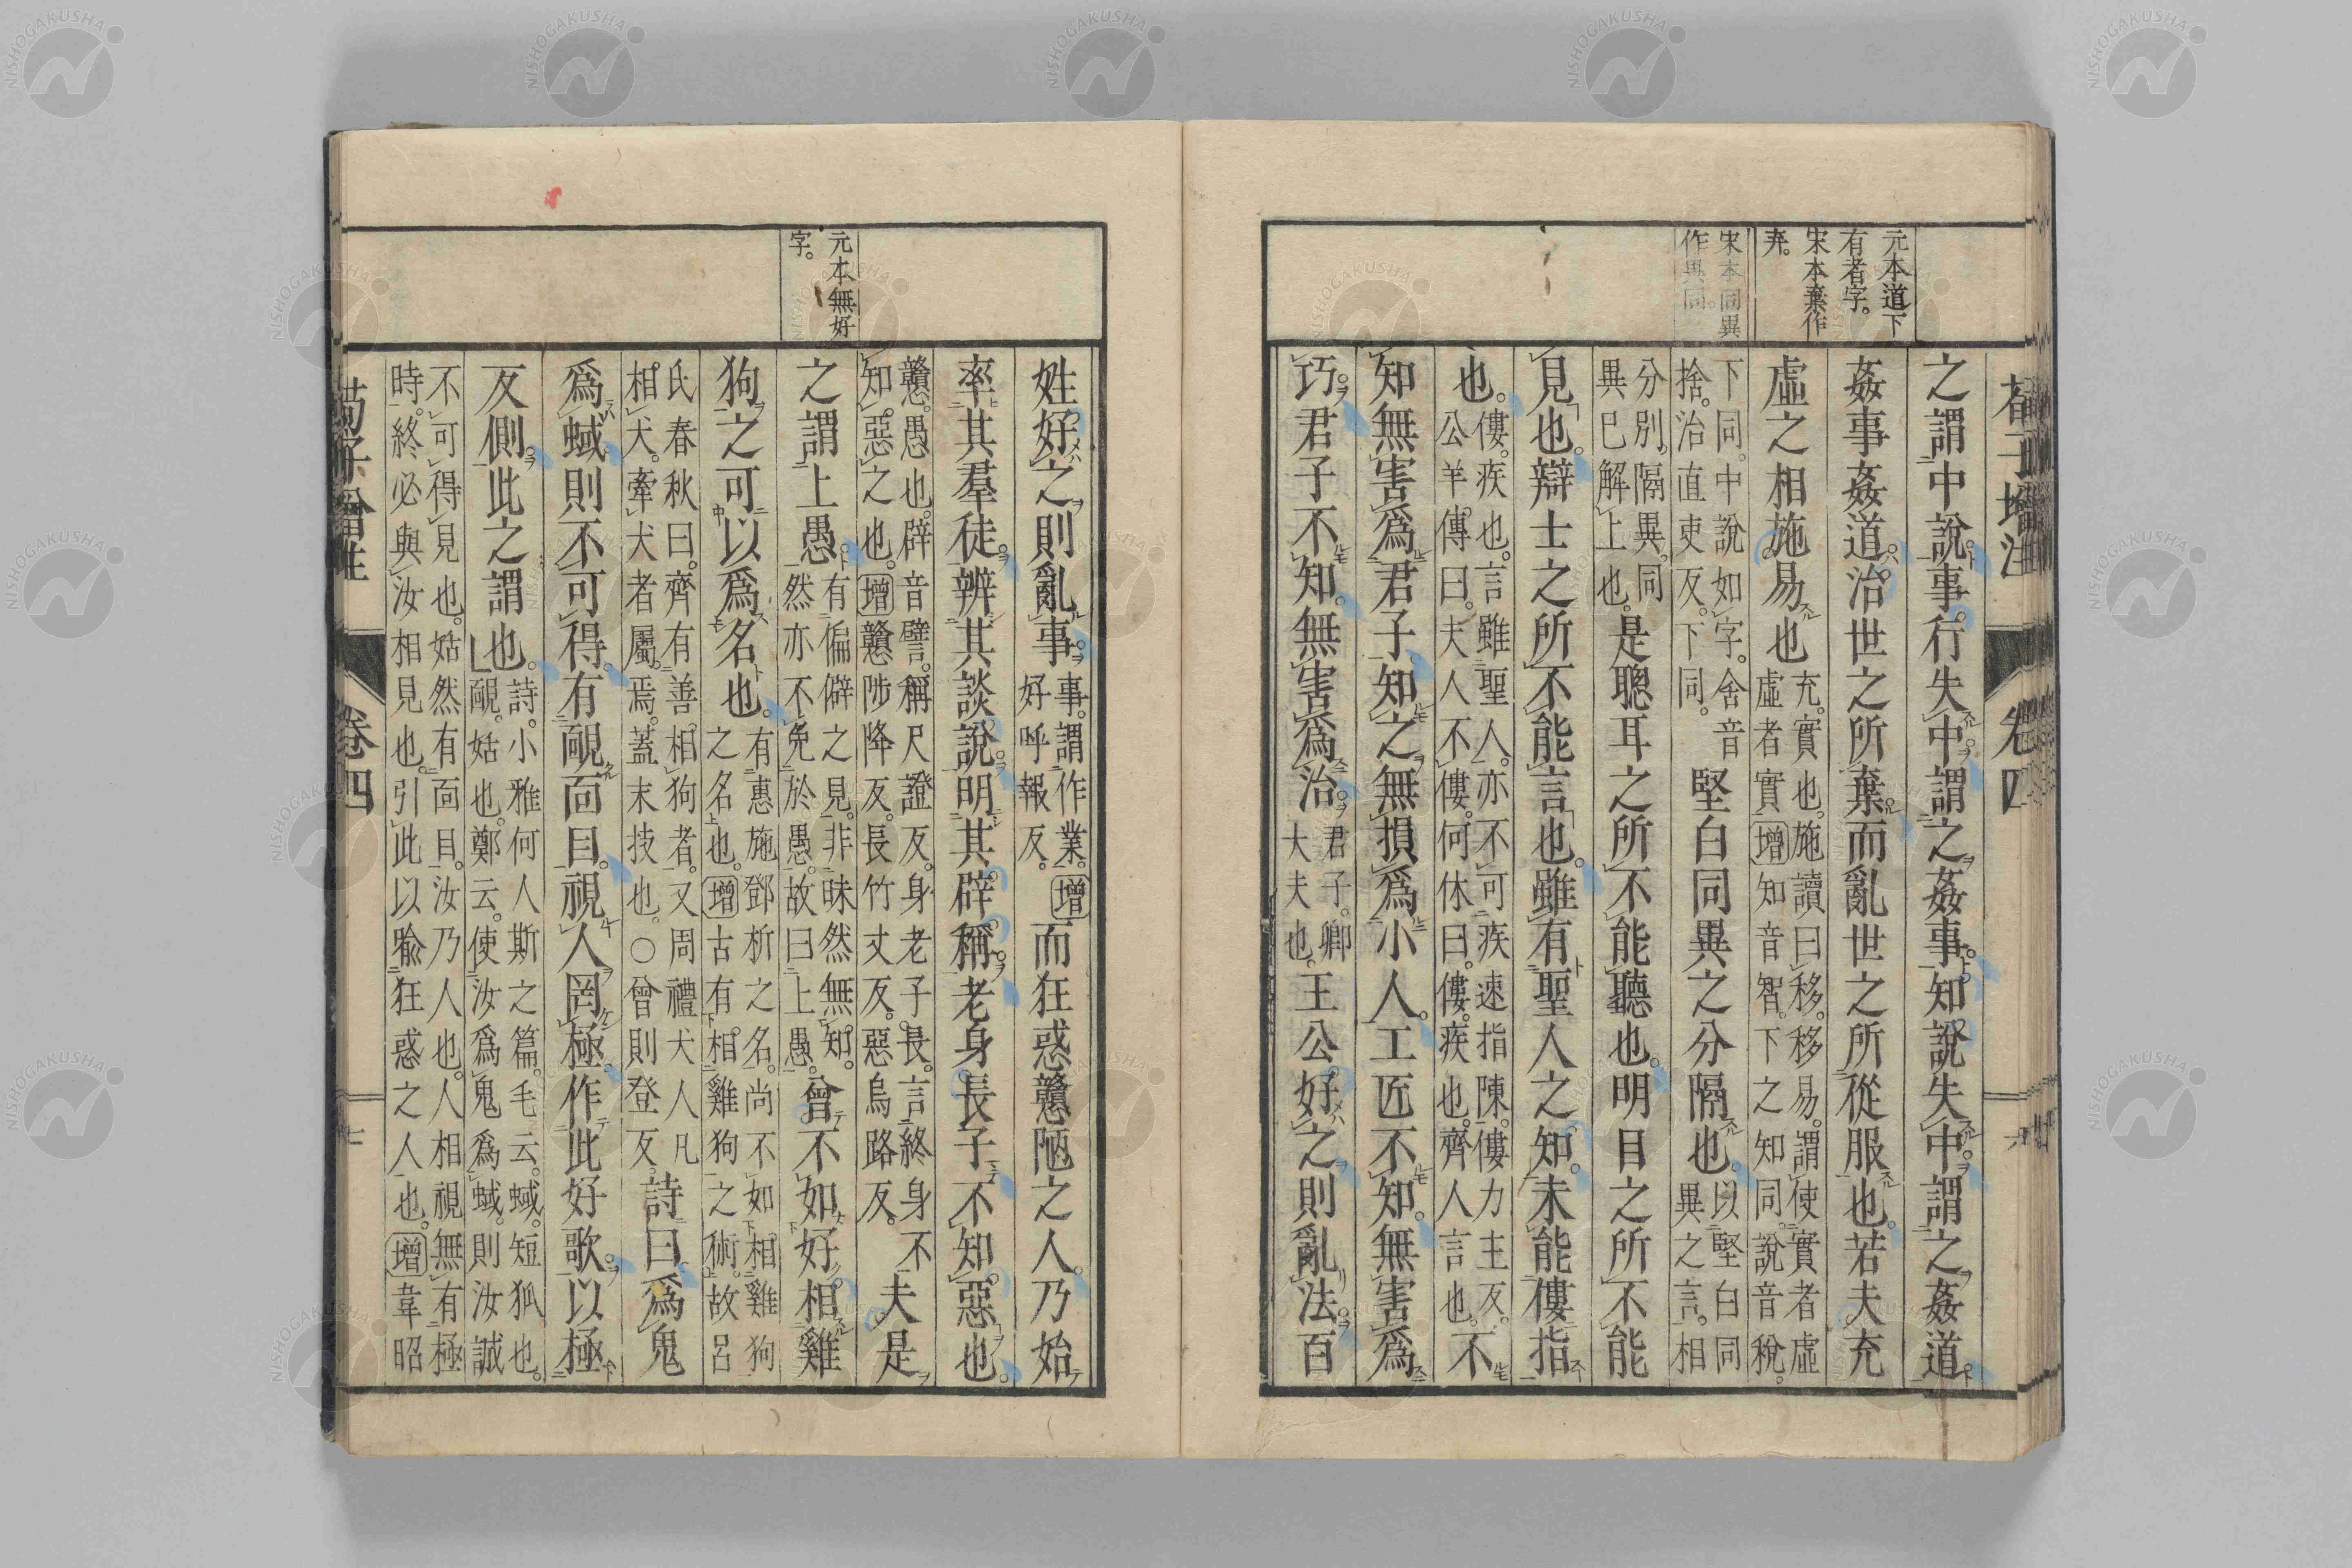 荀子增注 卷四
元本道下
有者字。
宋本棄作
弃。
宋本同異
作異同。
之謂中說。事行失中謂之姦事。知說失中謂之姦道
姦事姦道。治世之所棄。而亂世之所從服也。若夫充
虛之相施易也
充。實也。施讀曰移。移易。謂使實者虛
虛者實增知音智。下之知同。說音稅。
下同。中說如字。舍音
捨。治直吏反。下同。
堅白同異之分隔也。
以堅白同
異之言。相
分別。隔異。同
異巳解上也。
是聰耳之所不能聽也。明目之所不能
見也。辯士之所不能言也。雖有聖人之知。未能僂指
也。
僂。疾也。言雖聖人。亦不可疾速指陳。僂力主反。
公羊傳曰。夫人不僂。何休曰。僂。疾也。齊人言也。
不
知無害爲君子。知之無損爲小人。工匠不知。無害爲
巧。君子不知。無害爲治。
君子。卿
大夫也。
王公好之則亂法。百
元本無好
字。
姓好之則亂事。
事。謂作業。增
好呼報反。
而狂惑戇陋之人。乃始
率其羣徒。辨其談說。明其辟稱。老身長子。不知惡也。
戇。愚也。辟音譬。稱尺證反。身老子長。言終身不
知惡之也。增戇陟降反。長竹丈反。惡烏路反。
夫是
之謂上愚。
有偏僻之見。非昧然無知。
然亦不免於愚。故曰上愚。
曾不如好相雞
狗之可以爲名也。
有惠施鄧析之名。尚不如相雞狗
之名也。增古有相雞狗之術。故呂
氏春秋曰。齊有善相狗者。又周禮犬人凡
相犬。牽犬者屬焉。蓋末技也。○曾則登反。
詩曰。爲鬼
爲蜮。則不可得。有靦面目。視人罔極。作此好歌。以極
反側。此之謂也。
詩。小雅何人斯之篇。毛云。蜮。短狐也。
靦。姑也。鄭云。使汝爲鬼爲蜮。則汝誠
不可得見也。姑然有面目。汝乃人也。人相視無有極
時。終必與汝相見也。引此以喩狂惑之人也。增韋昭
卷四
七